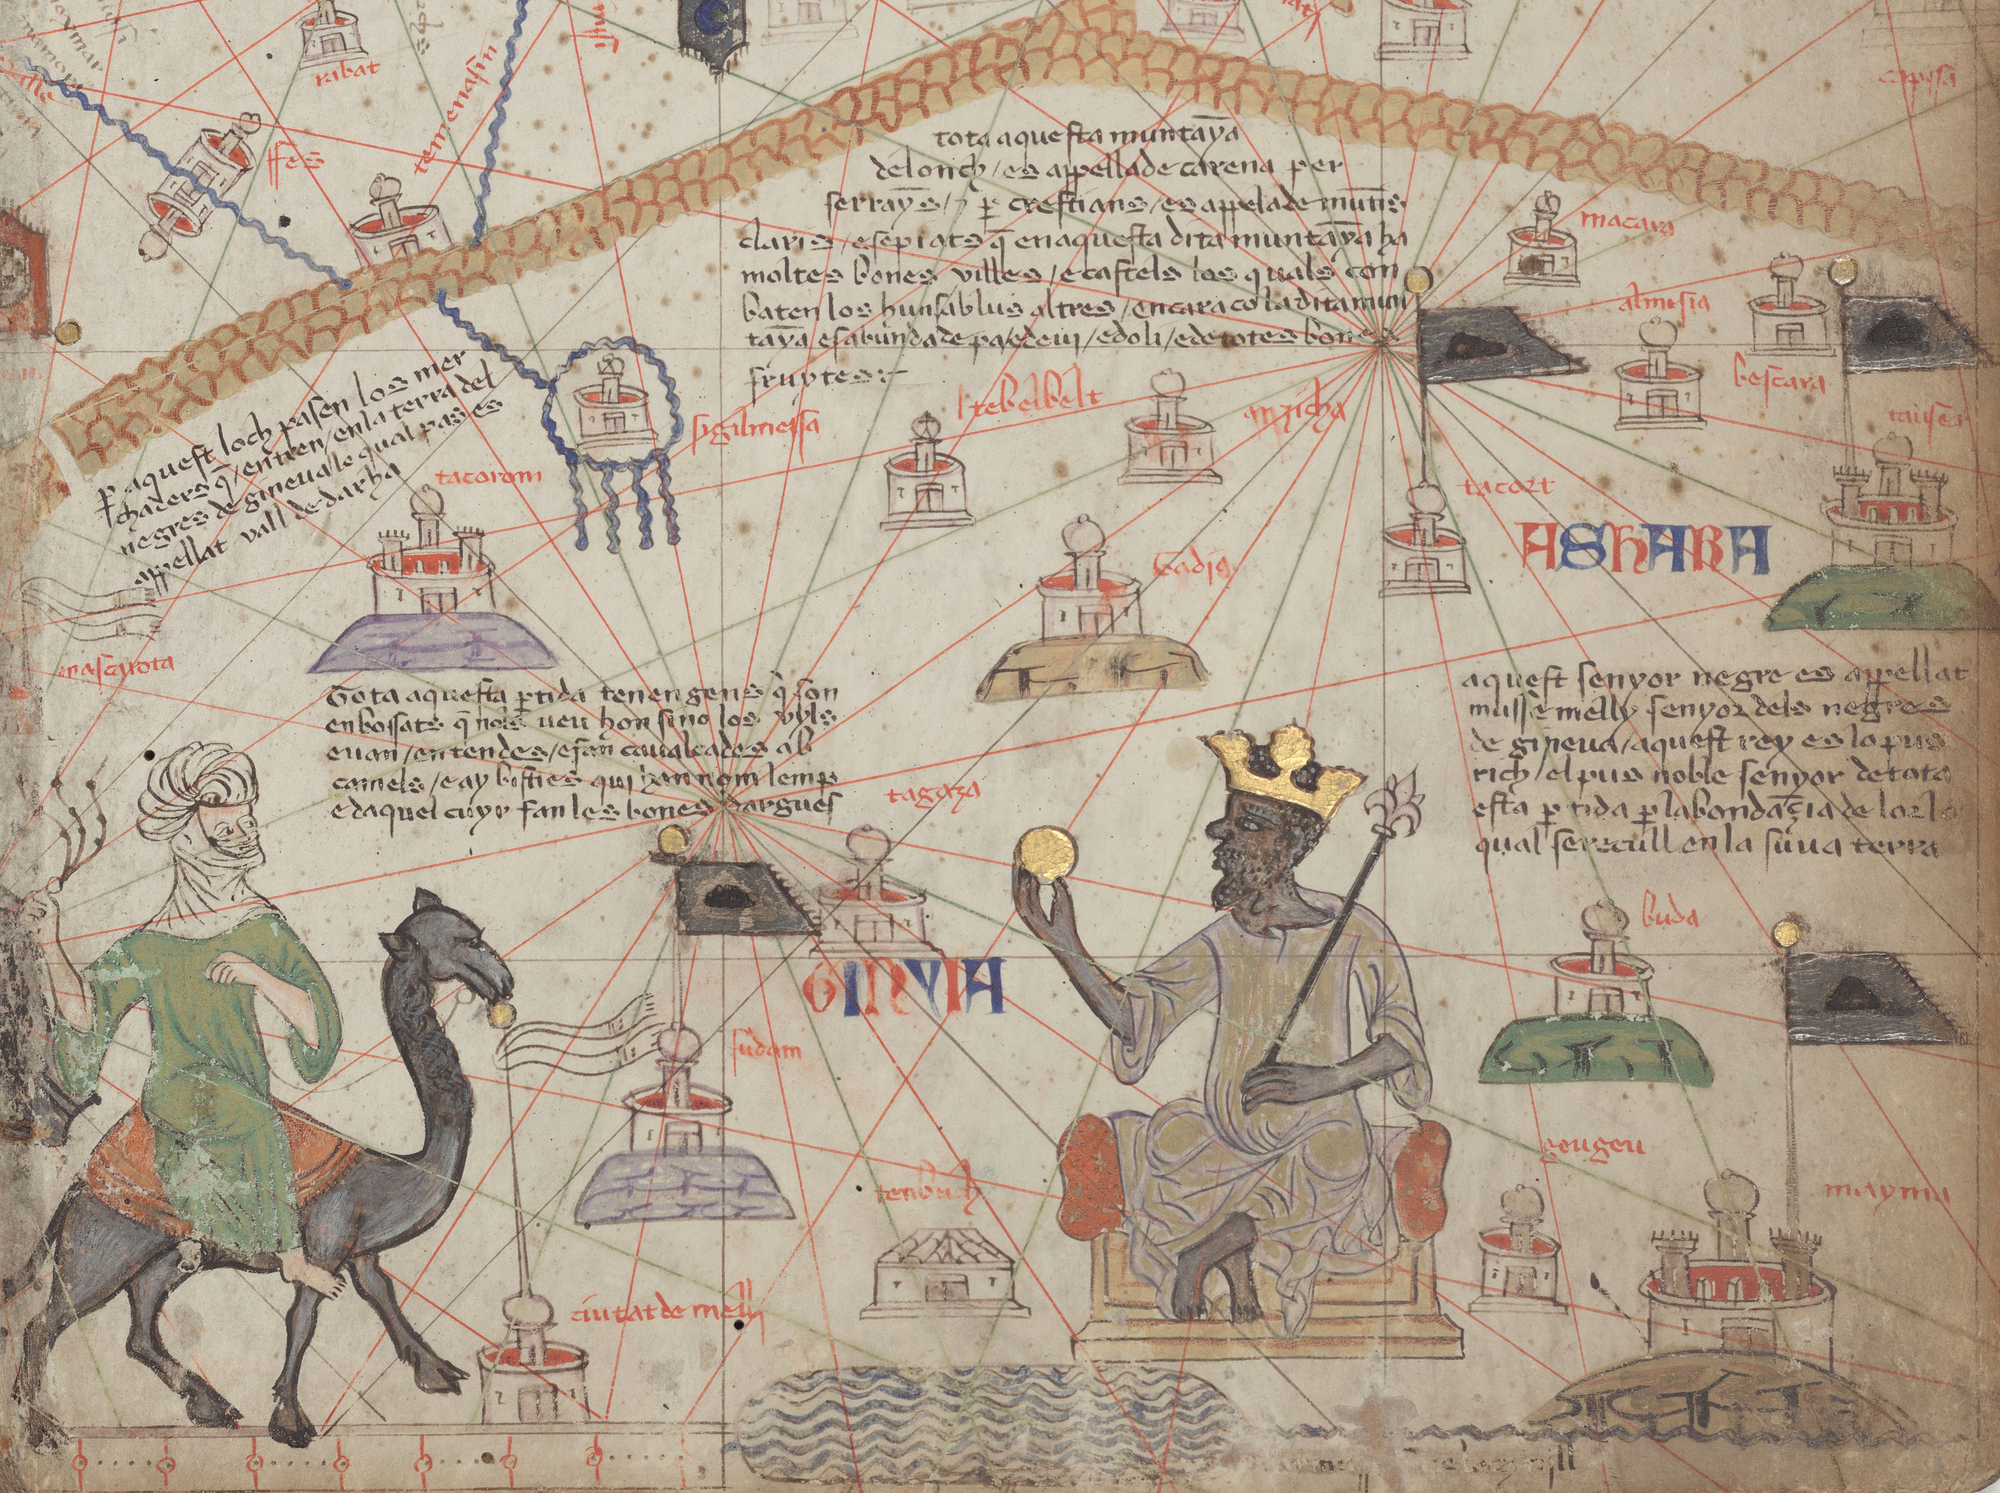 rabat
ffes
temenasin
tota aquesta muntaya
de lonch / es appellade carena per
serrayns / i per crestians / es appelade muntis
claris / e sepiats q en aquesta dita muntaya ha
moltes bones villes / e castels los quals con
baten los huns ab lus altres / encara co la dita mun
taya es abunda de pa / e de vij / e doli / e de totes bones
fruytes:
macara
almisia
bescara
capisa
p aquest loch pasen los mer
chaders q / entren / en la terra del
negres de gineva le qual pas es
appellat vall de darha
sigilmessa
tebelbelt
anzicha
tacort
tauser
tacorom
ASHARA
Gadis
mascarota
Tota aquesta ptida tenen gens q son
enbossats q nols veu hon sino los vyls
e van / en tendes / e fan cavalcades ab
camels / e ay bisties qui han nom lemp
e daquel cuyr fan les bones dargues
aquest senyor negre es appellat
musse melly senyor dels negres
de gineva / aquest rey es lo pus
rich / el pus noble senyor de tota
esta ptida p labondacia de lor lo
qual se recull en la suua terra
tagaza
buda
GINYIA
sudam
tenbuch
geugeu
mayma
ciutat de melli